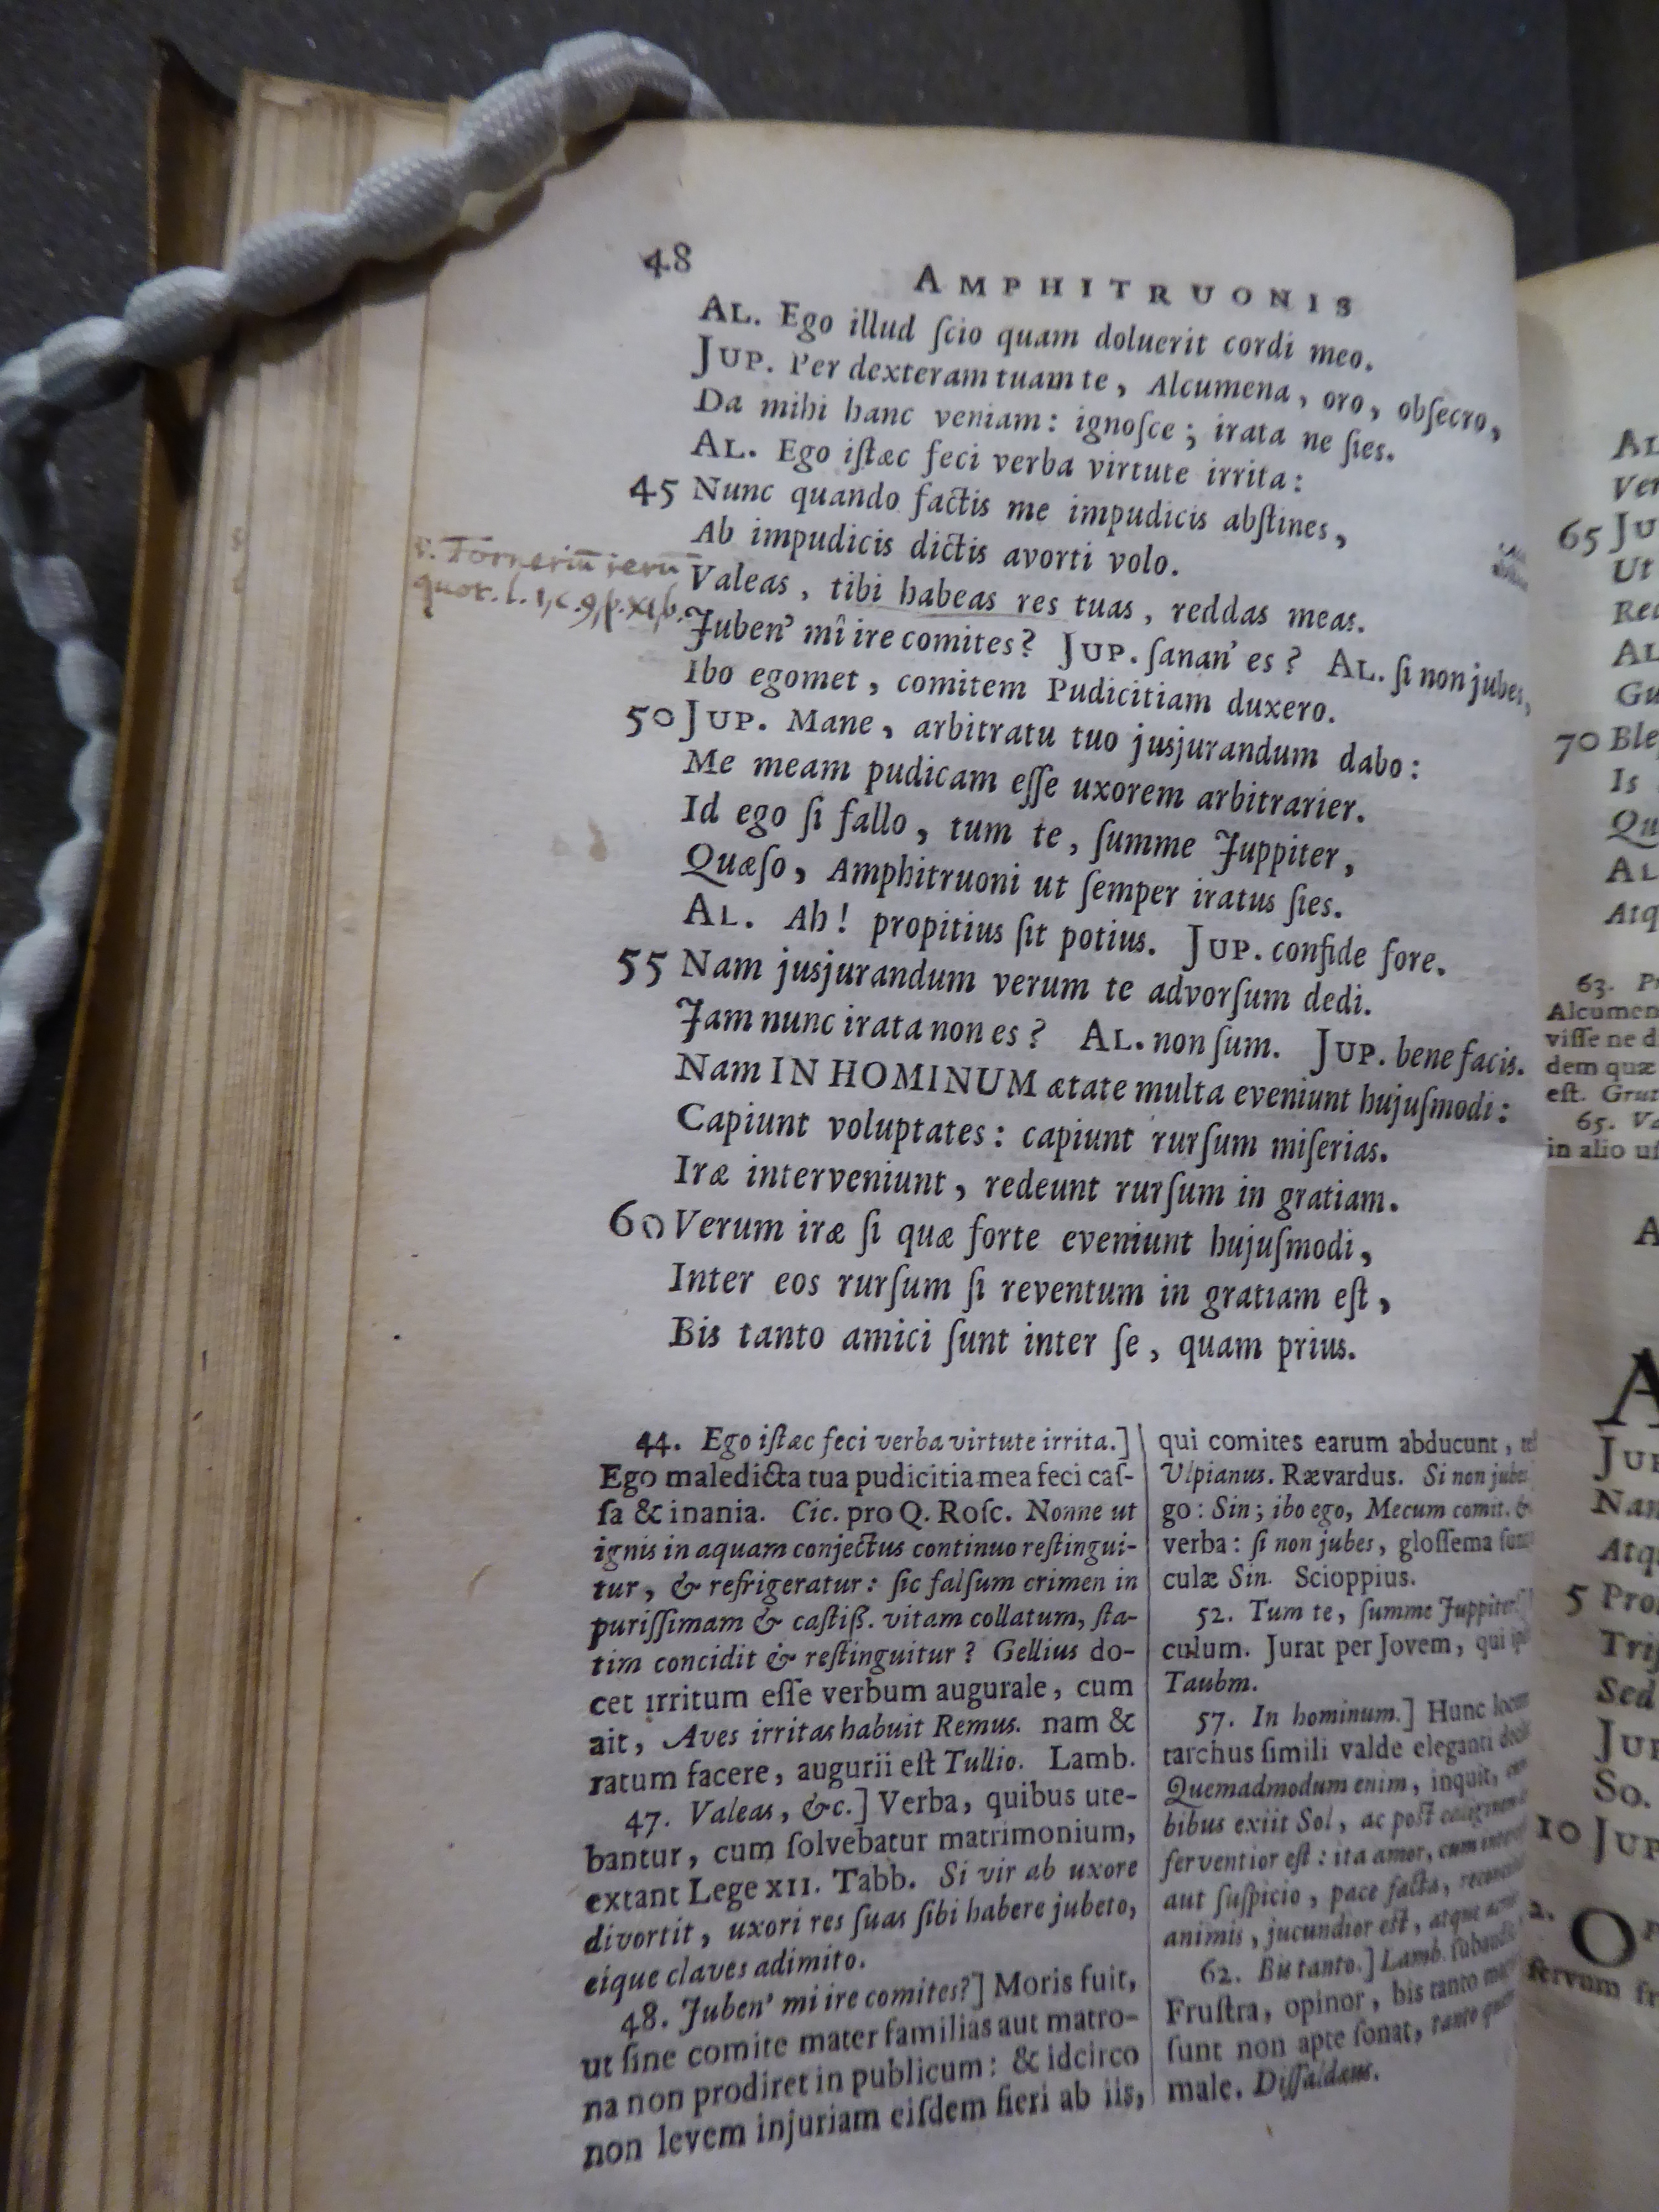 48
AMPHITRUONIS
AL. Ego illud ſcio quam doluerit cordi meo.
JUP. Per dexteram tuam te, Alcumena, oro, obſecro,
Da mihi hanc veniam: ignoſce; irata ne ſies.
AL. Ego iſtæc feci verba virtute irrita:
45 Nunc quando factis me impudicis abſtines,
Ab impudicis dictis avorti volo.
Valeas, tibi habeas res tuas, reddas meas.
Juben' mî ire comites? JUP. ſanan' es? AL. ſi non jubes,
Ibo egomet, comitem Pudicitiam duxero.
50 JUP. Mane, arbitratu tuo jusjurandum dabo:
Me meam pudicam eſſe uxorem arbitrarier.
Id ego ſi fallo, tum te, ſumme Juppiter,
Quæſo, Amphitruoni ut ſemper iratus ſies.
AL. Ah! propitius ſit potius. JUP. confide fore.
55 Nam jusjurandum verum te advorſum dedi.
Jam nunc irata non es? AL. non ſum. JUP. bene facis.
Nam IN HOMINUM ætate multa eveniunt hujuſmodi:
Capiunt voluptates: capiunt rurſum miſerias.
Iræ interveniunt, redeunt rurſum in gratiam.
60 Verum iræ ſi quæ forte eveniunt hujuſmodi,
Inter eos rurſum ſi reventum in gratiam eſt,
Bis tanto amici ſunt inter ſe, quam prius.
v. Torneriū rerū
quot. l. 1, c. 9, p. XI, b.
44. Ego iſtæc feci verba virtute irrita.]
Ego maledicta tua pudicitia mea feci caſ-
ſa & inania. Cic. pro Q. Roſc. Nonne ut
ignis in aquam conjectus continuo reſtingui-
tur, & refrigeratur: ſic falſum crimen in
puriſſimam & caſtiß. vitam collatum, ſta-
tim concidit & reſtinguitur? Gellius do-
cet irritum eſſe verbum augurale, cum
ait, Aves irritas habuit Remus. nam &
ratum facere, augurii eſt Tullio. Lamb.
47. Valeas, &c.] Verba, quibus ute-
bantur, cum ſolvebatur matrimonium,
extant Lege XII. Tabb. Si vir ab uxore
divortit, uxori res ſuas ſibi habere jubeto,
eique claves adimito.
48. Juben' mi ire comites?] Moris fuit,
ut ſine comite mater familias aut matro-
na non prodiret in publicum: & idcirco
non levem injuriam eiſdem fieri ab iis,
qui comites earum abducunt,
Ulpianus. Rævardus. Si non jubes
go: Sin; ibo ego, Mecum comit. &
verba: ſi non jubes, gloſſema
culæ Sin. Scioppius.
52. Tum te, ſumme Juppiter
culum. Jurat per Jovem, qui
Taubm.
57. In hominum.] Hunc
tarchus ſimili valde eleganti
Quemadmodum enim, inquit,
bibus exiit Sol, ac poſt
ferventior eſt: ita amor, cum
aut ſuſpicio, pace facta,
animis, jucundior eſt, atque
62. Bis tanto.] Lamb.
Fruſtra, opinor, bis tanto
ſunt non apte ſonat, tanto
male. Diſſaldæus.
65
70
Is
63.
Alcumen
viſſe ne d
dem quæ
eſt.
65.
in alio
JUP
5
Sed
JUP
So.
10 JUP
2.
ſervum